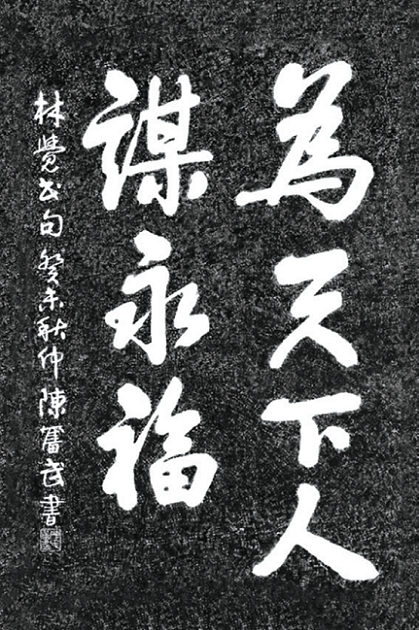 為天下人
謀永福
林覺民句癸未秋仲陳奮武書